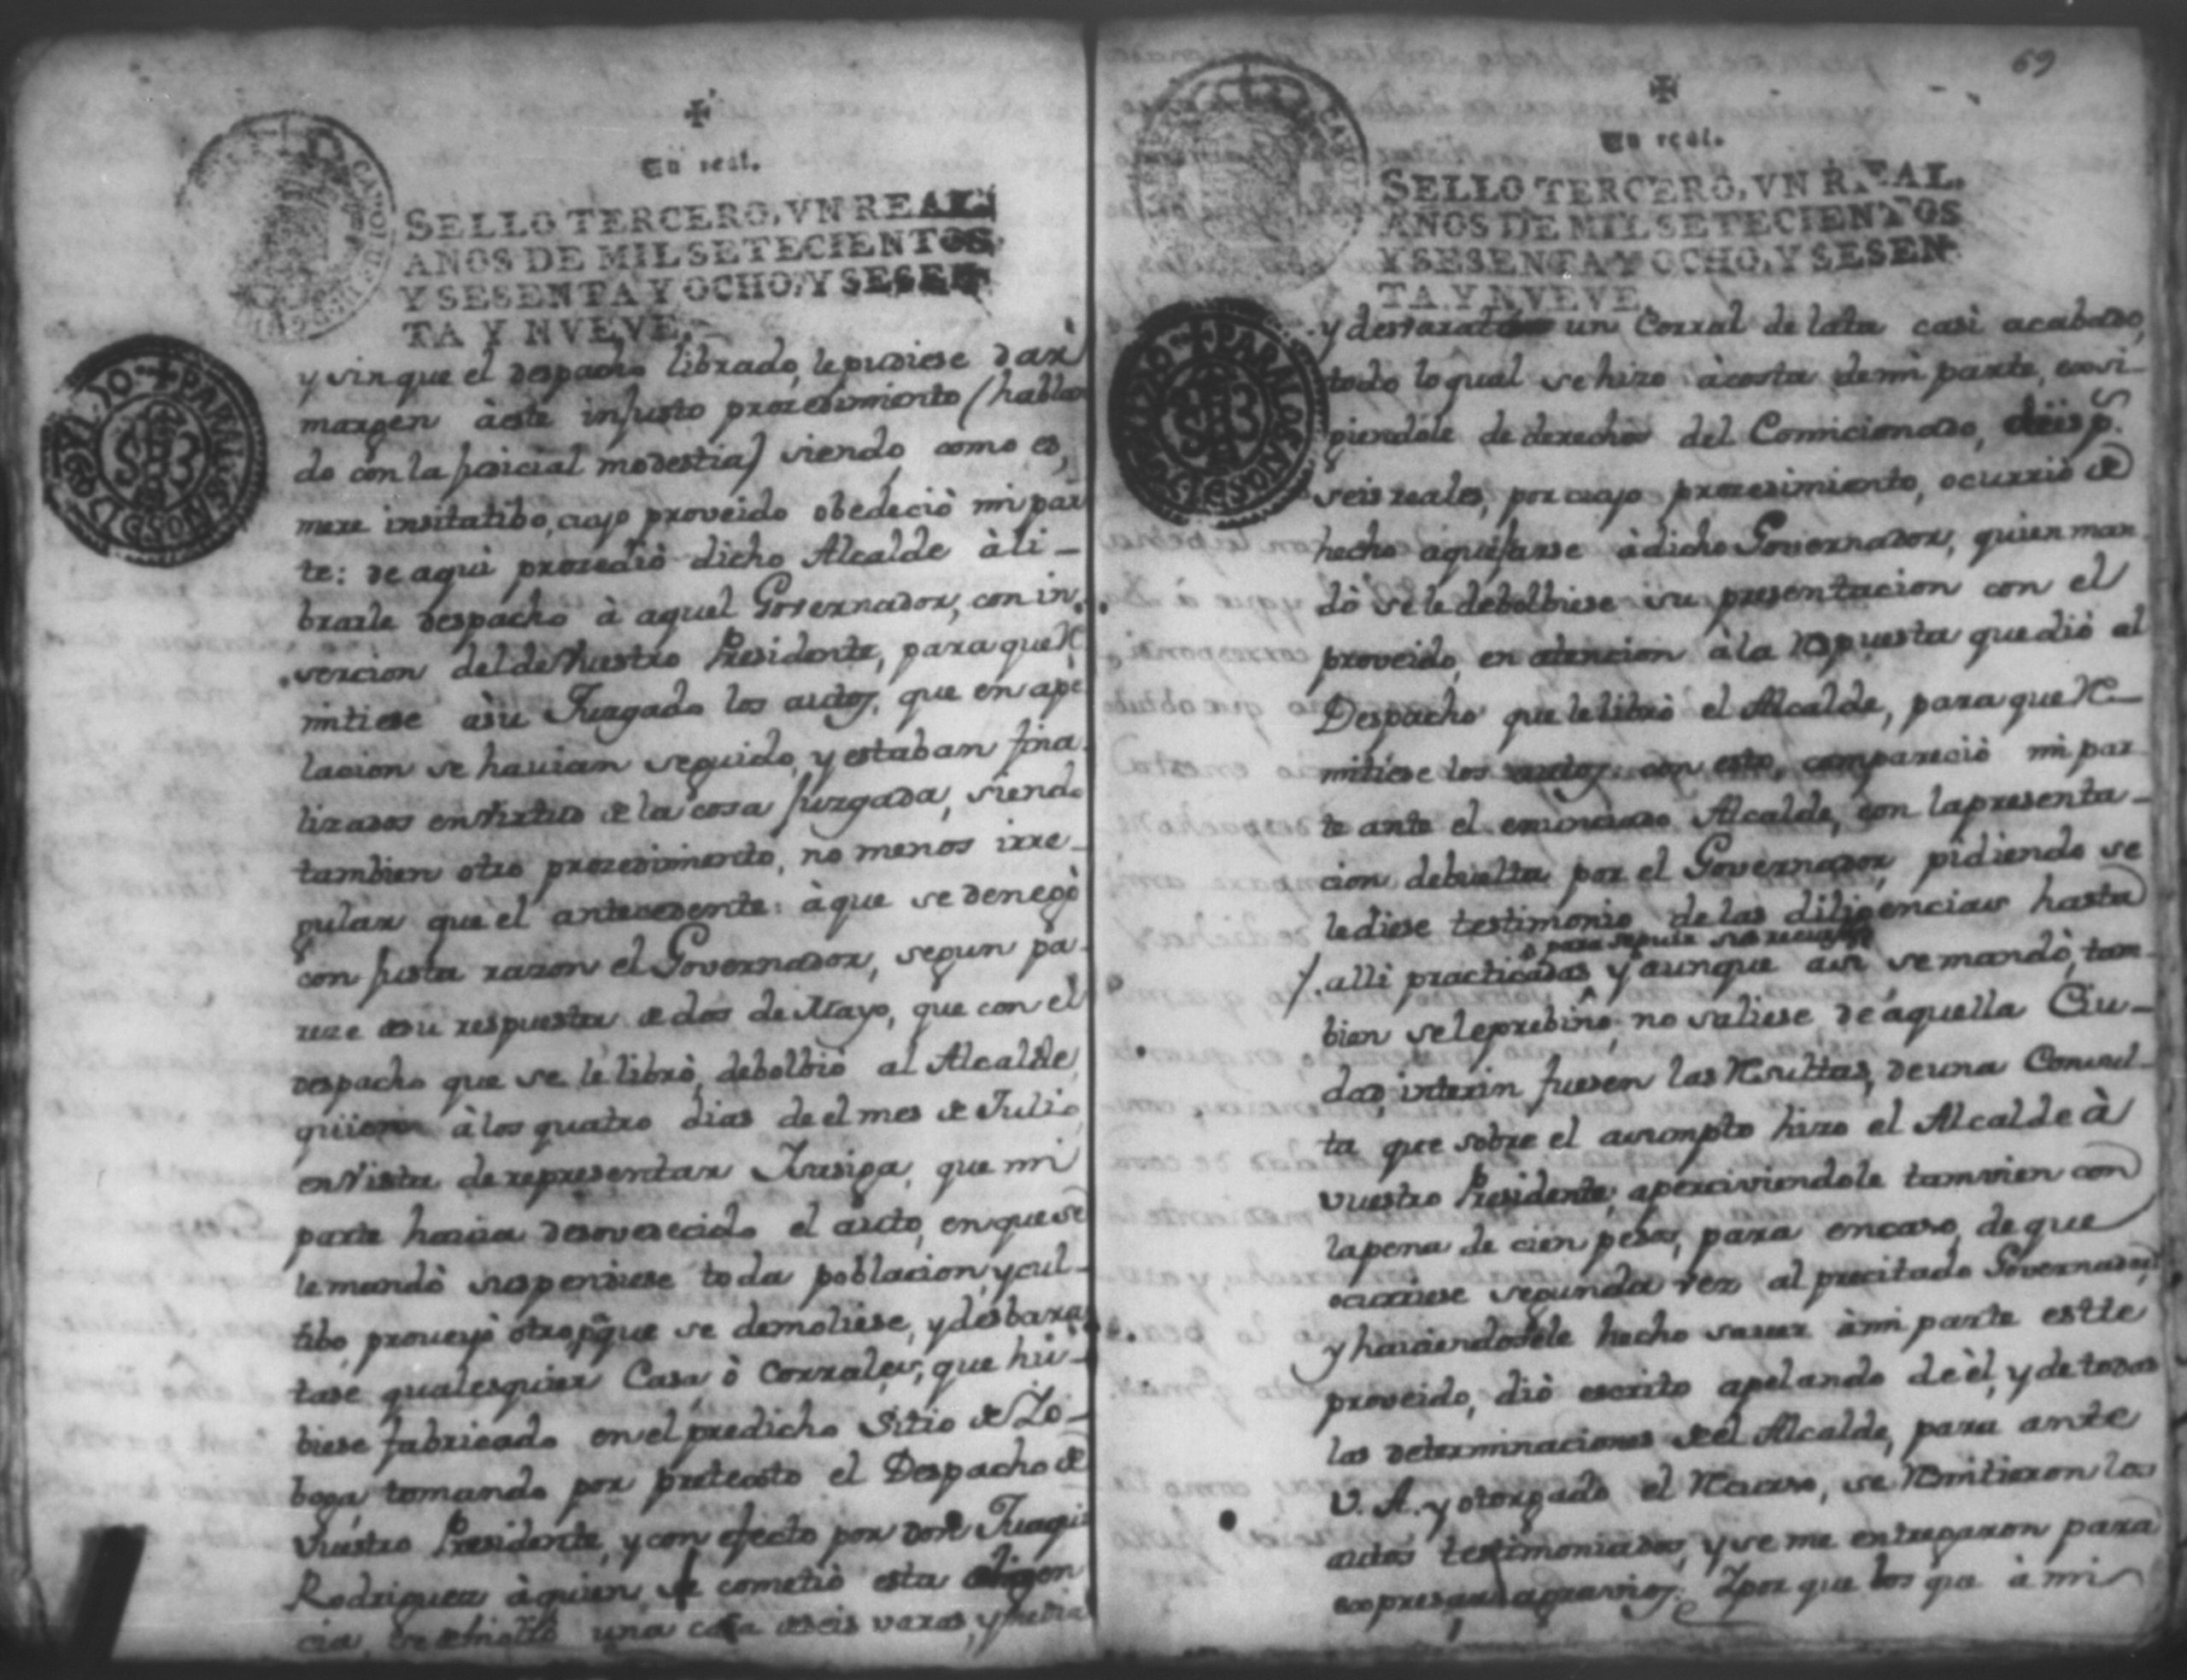 Un real.
SELLO TERCERO, VN REAL,
AÑOS DE MIL SETECIENTOS
Y SESENTA Y OCHO, Y SESEN
TA Y NVEVE.
y sin que el despacho librado, le pudiese dar
margen à este injusto procedimiento (hablan
do con la judicial modestia) siendo, como es,
mere insitatibo, cuyo proveido obedeciò mi par
te: de aqui procediò dicho Alcalde à li-
brarle despacho à aquel Governador, con in
sercion del de Vuestro Presidente, para que re
mitiese a su Juzgado los autos, que en ape
lacion se havian seguido, y estaban fina
lizados en virtud de la cosa juzgada, siendo
tambien otro procedimiento, no menos irre-
gular que el antecedente: à que se denegò
con justa razon el Governador, segun pa-
reze de su respuesta de dos de Mayo, que con el
despacho que se le librò, debolbiò al Alcalde,
quien à los quatro dias de el mes de Julio
en vista de representar que mi
parte havia desovedecido el auto, en que se
le mandò suspendiese toda poblacion, y cul-
tibo, proveyò otro pa. que se demoliese, y desbara
tase qualesquier Casa ò Corrales, que hu-
biese fabricado en el predicho Sitio de Lo-
boga, tomando por pretexto el Despacho de
Vuestro Presidente, y con efecto por don Juaqui
Rodriguez à quien se cometiò esta diligen
cia, una casa de seis varas, y media
69
Un real.
SELLO TERCERO, VN REAL,
AÑOS DE MIL SETECIENTOS
Y SESENTA Y OCHO, Y SESEN
TA Y NVEVE.
y desvarato un Corral de lata casi acabado,
todo lo qual se hizo à costa de mi parte, exsi-
giendole de derechos del Comicionado, ps.
seis reales, por cuyo procedimiento, ocurriò de
hecho aquejarse à dicho Governador, quien man
dò se le debolbiese su presentacion con el
proveido, en atencion à la respuesta que diò al
Despacho que le librò el Alcalde, para que re-
mitiese los autos: con esto, compareciò mi par
te ante el enunciado Alcalde, con la presenta-
cion debuelta por el Governador, pidiendo se
le diese testimonio de las diligencias hasta
para seguir sus recursos
alli practicadas y aunque asi se mandò, tam
bien se le prebino no saliese de aquella Ciu-
dad, interin fuesen las resultas, de una Consul-
ta que sobre el asumpto hizo el Alcalde à
vuestro Presidente, aperciviendole tamvien con
la pena de cien pesos, para en caso, de que
ocurriese segunda vez al precitado Governador,
y haciendosele hecho saver à mi parte estte
proveido, diò escrito apelando de èl, y de todas
las determinaciones de el Alcalde, para ante
V. A. y otorgado el recurso, se remitieron los
autos testimoniados, y se me entregaron para
expresar agravios: Y por que los que à mi